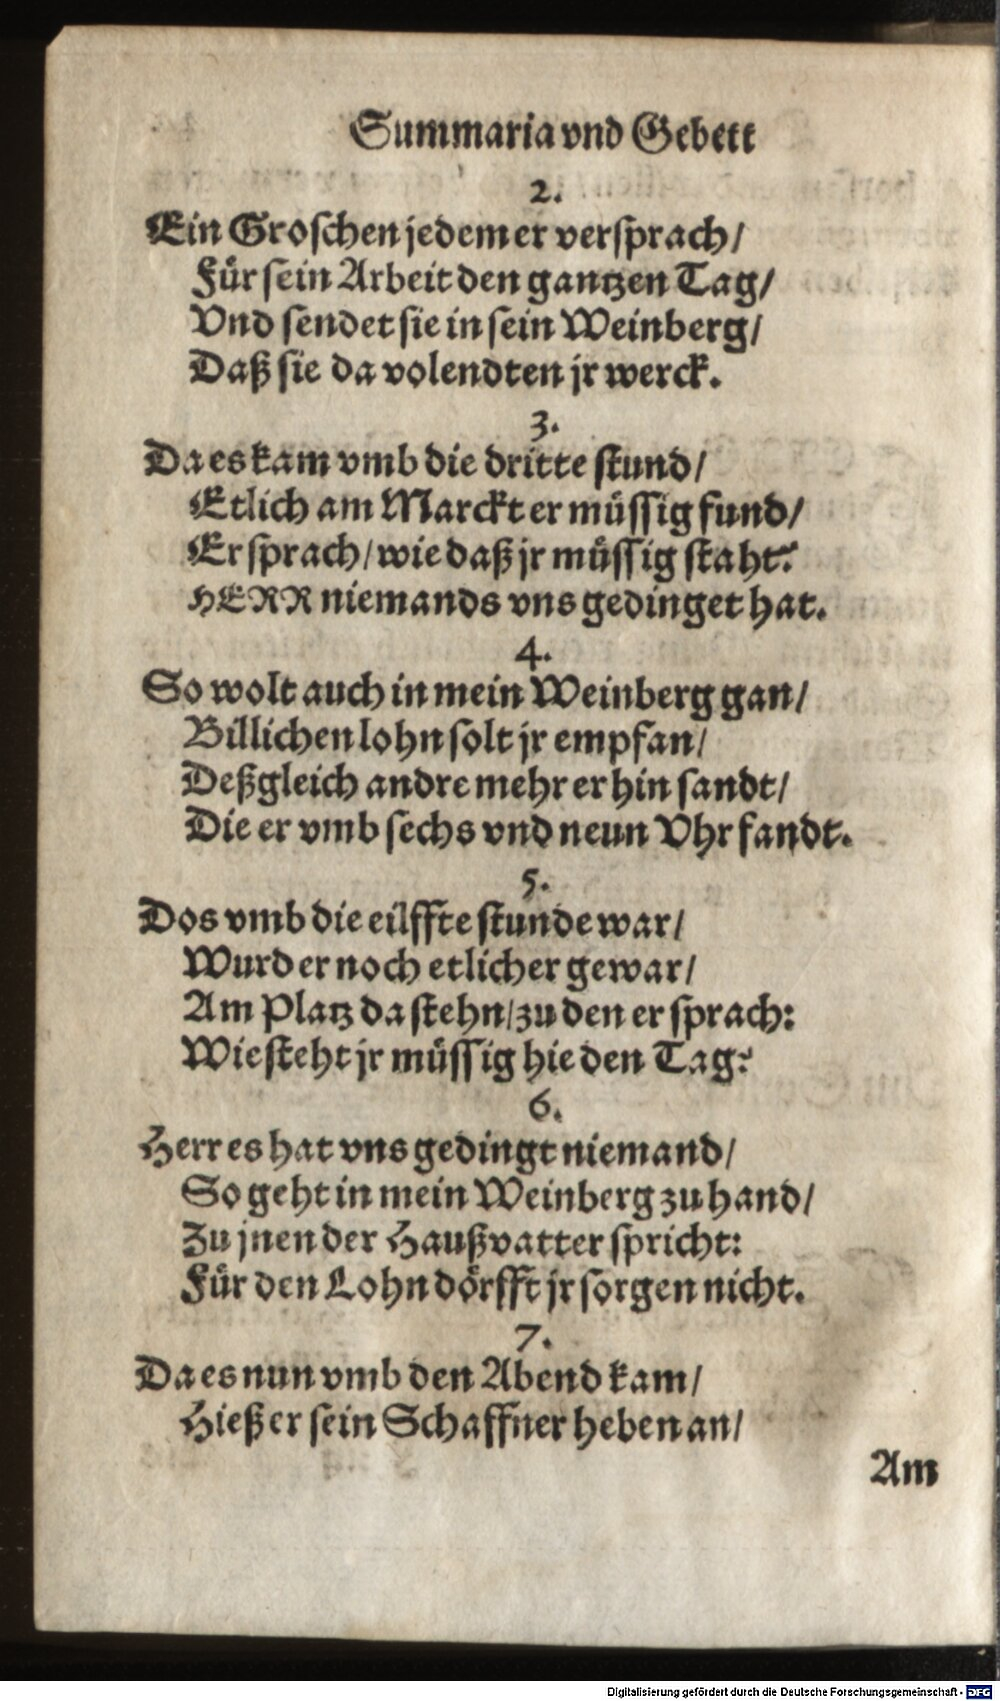 Summaria vnd Gebett
2.
Ein Groschen jedem er versprach/
Für sein Arbeit den gantzen Tag/
Vnd sendet sie in sein Weinberg/
Daß sie da volendten jr werck.
3.
Da es kam vmb die dritte stund/
Etlich am Marckt er müssig fund/
Er sprach/ wie daß jr müssig staht?
HERR niemands vns gedinget hat.
4.
So wolt auch in mein Weinberg gan/
Billichen lohn solt jr empfan/
Deßgleich andre mehr er hin sandt/
Die er vmb sechs vnd neun Vhr fandt.
5.
Dos vmb die eilffte stunde war/
Wurd er noch etlicher gewar/
Am Platz da stehn/ zu den er sprach:
Wie steht jr müssig hie den Tag?
6.
Herr es hat vns gedingt niemand/
So geht in mein Weinberg zu hand/
Zu jnen der Haußvatter spricht:
Für den Lohn dörfft jr sorgen nicht.
7.
Da es nun vmb den Abend kam/
Hieß er sein Schaffner heben an/
Am
Digitalisierung gefördert durch die Deutsche Forschungsgemeinschaft - DFG